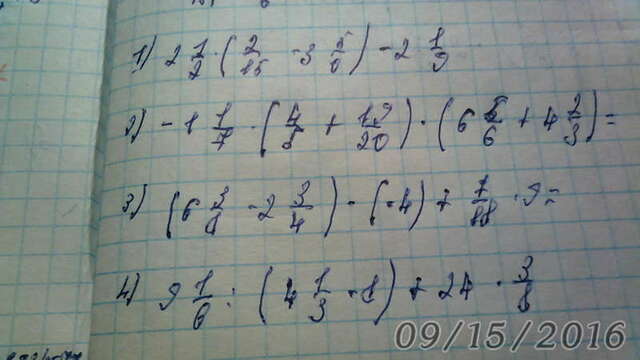 1) 2 1/2 · (2/15 - 3 5/6) - 2 1/9
2) - 1 1/7 · (4/5 + 19/20) · (6 5/6 + 4 2/3) =
3) (6 3/8 - 2 3/4) · (-4) + 7/18 · 9 =
4) 9 1/6 : (4 1/3 - 8) + 24 · 3/8
09/15/2016